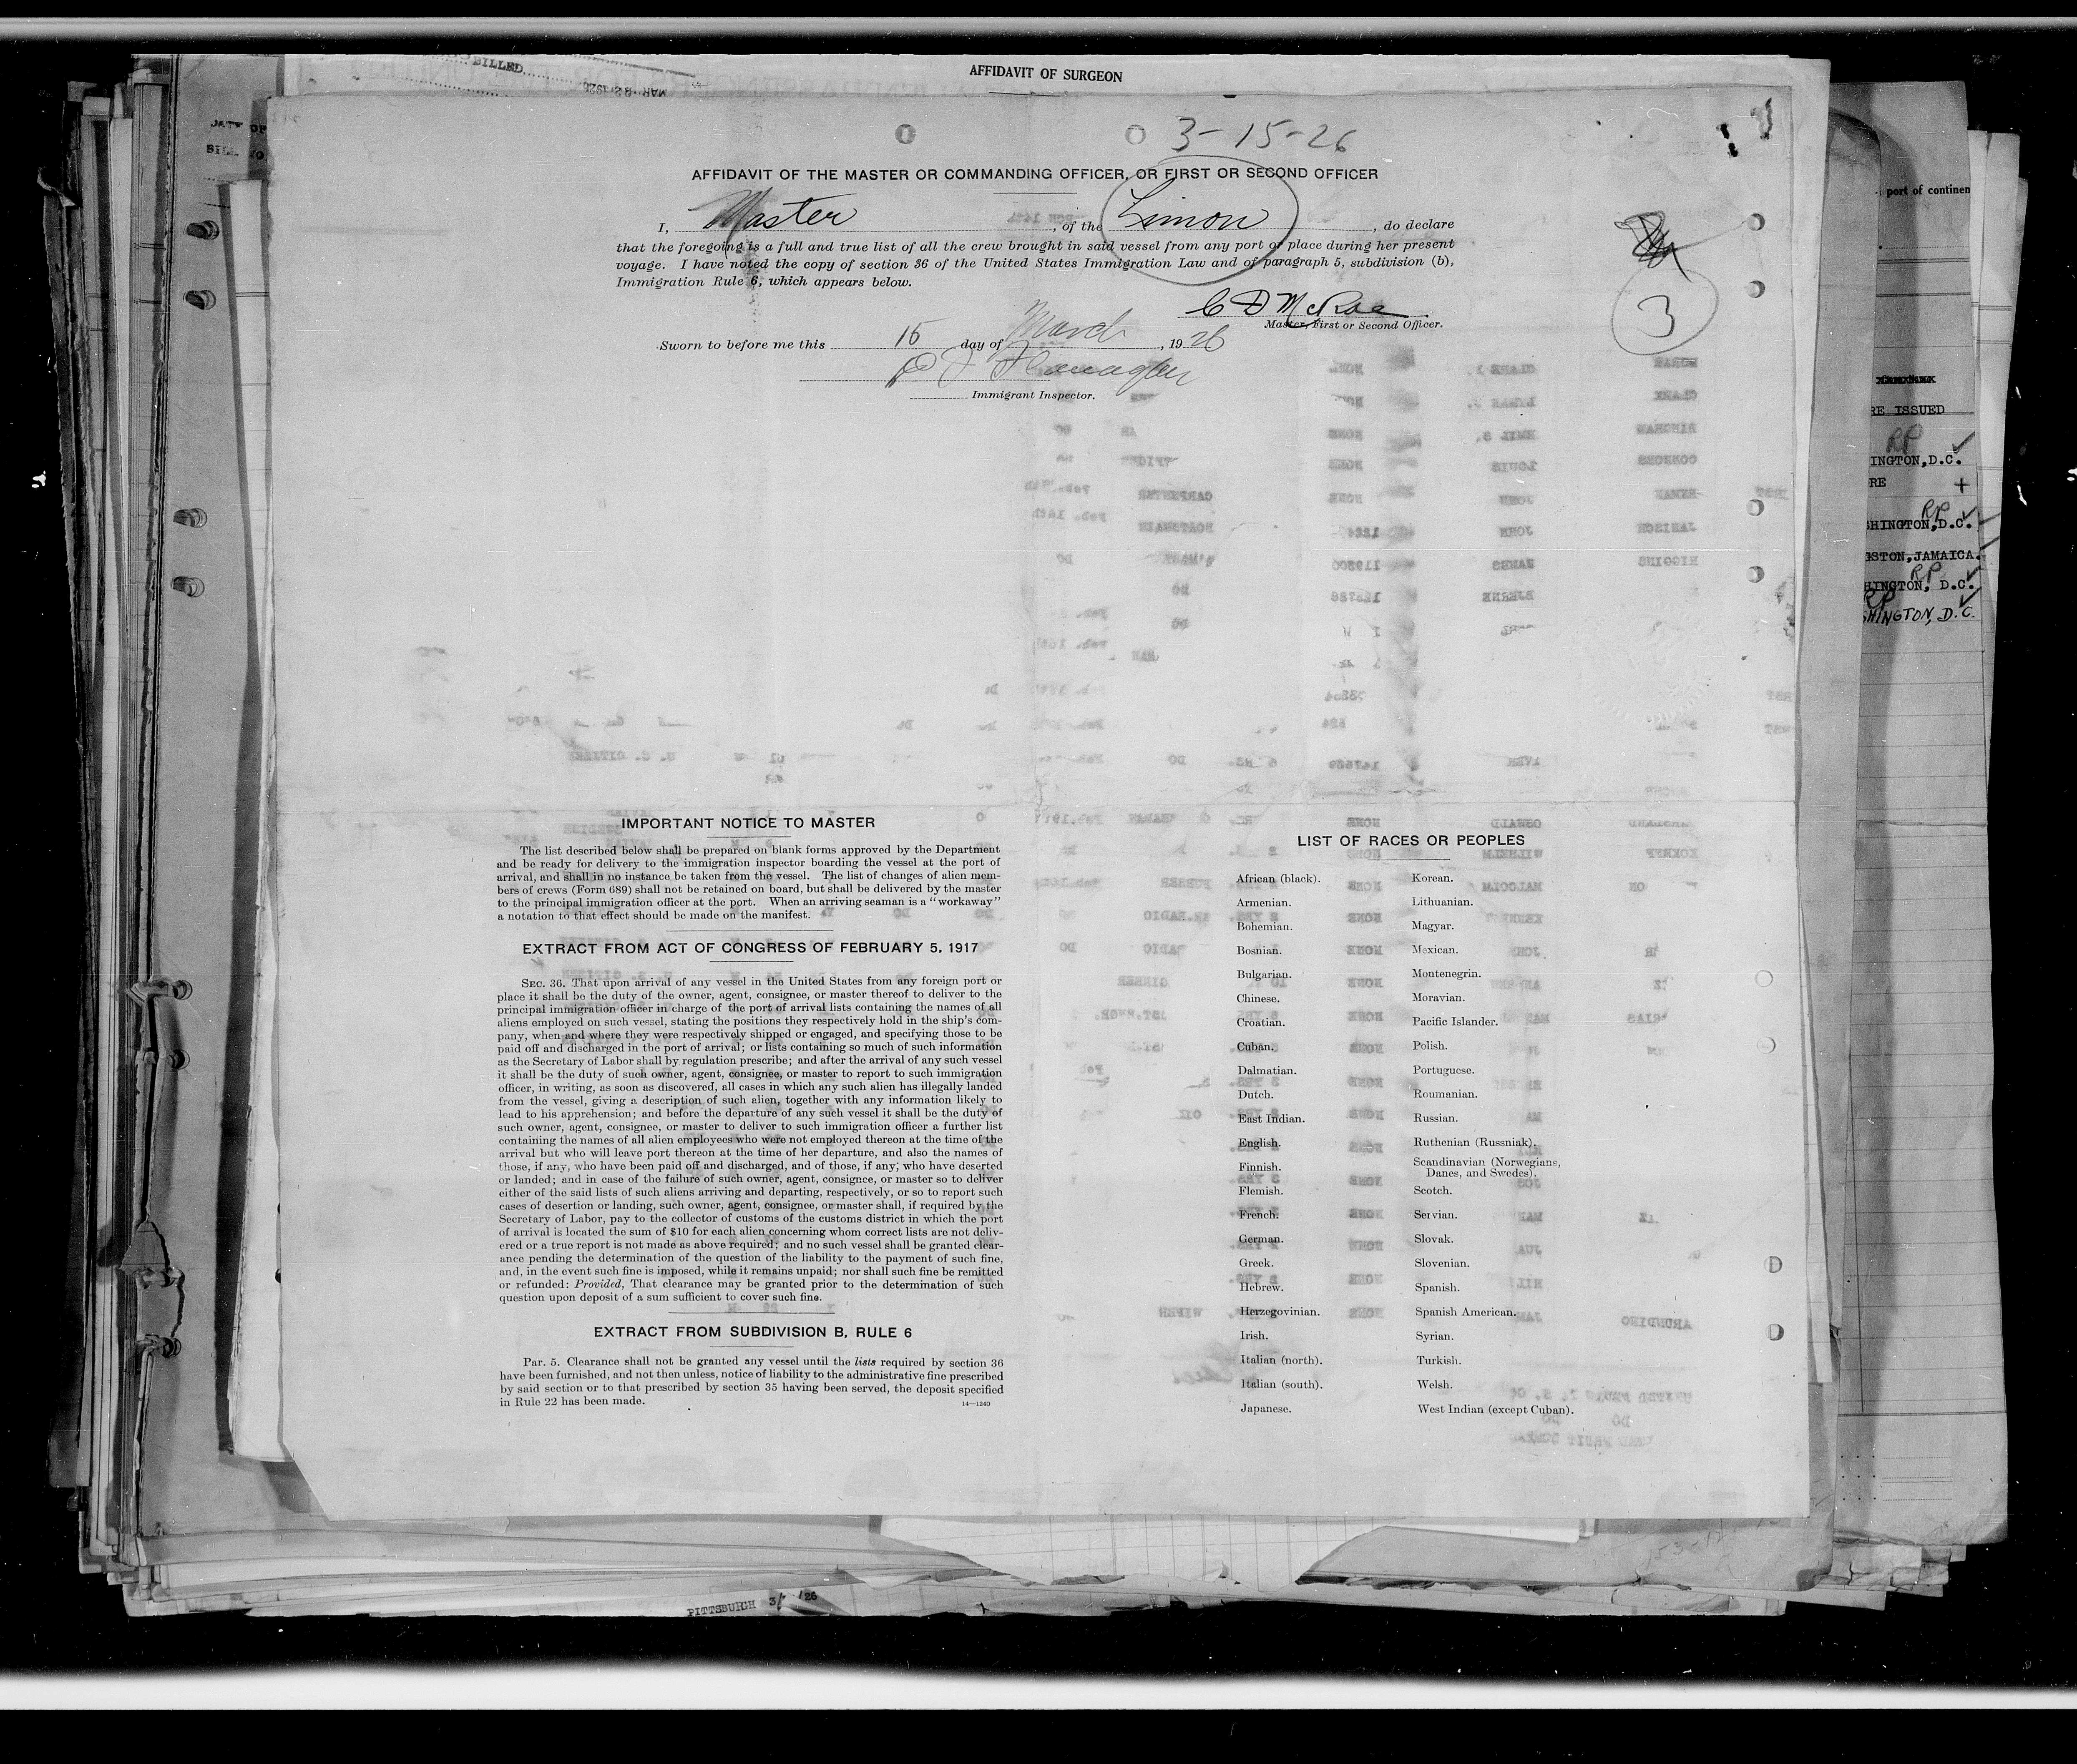 BILLED
MAR 22 1926
AFFIDAVIT OF SURGEON
3-15-26
AFFIDAVIT OF THE MASTER OR COMMANDING OFFICER, OR FIRST OR SECOND OFFICER
I, Master, of the Limon, do declare
that the foregoing is a full and true list of all the crew brought in said vessel from any port or place during her present
voyage. I have noted the copy of section 36 of the United States Immigration Law and of paragraph 5, subdivision (b),
Immigration Rule 6, which appears below.
C D McRae
Master, First or Second Officer.
3
Sworn to before me this 15 day of March, 1926
Flanagan
Immigrant Inspector.
port of continen
RE ISSUED
RP
INGTON, D.C.
RE +
RP
SHINGTON, D.C.
GSTON, JAMAICA.
RP
HINGTON, D.C.
RP
SHINGTON, D.C.
IMPORTANT NOTICE TO MASTER
The list described below shall be prepared on blank forms approved by the Department
and be ready for delivery to the immigration inspector boarding the vessel at the port of
arrival, and shall in no instance be taken from the vessel. The list of changes of alien mem-
bers of crews (Form 689) shall not be retained on board, but shall be delivered by the master
to the principal immigration officer at the port. When an arriving seaman is a "workaway"
a notation to that effect should be made on the manifest.
EXTRACT FROM ACT OF CONGRESS OF FEBRUARY 5, 1917
SEC. 36. That upon arrival of any vessel in the United States from any foreign port or
place it shall be the duty of the owner, agent, consignee, or master thereof to deliver to the
principal immigration officer in charge of the port of arrival lists containing the names of all
aliens employed on such vessel, stating the positions they respectively hold in the ship's com-
pany, when and where they were respectively shipped or engaged, and specifying those to be
paid off and discharged in the port of arrival; or lists containing so much of such information
as the Secretary of Labor shall by regulation prescribe; and after the arrival of any such vessel
it shall be the duty of such owner, agent, consignee, or master to report to such immigration
officer, in writing, as soon as discovered, all cases in which any such alien has illegally landed
from the vessel, giving a description of such alien, together with any information likely to
lead to his apprehension; and before the departure of any such vessel it shall be the duty of
such owner, agent, consignee, or master to deliver to such immigration officer a further list
containing the names of all alien employees who were not employed thereon at the time of the
arrival but who will leave port thereon at the time of her departure, and also the names of
those, if any, who have been paid off and discharged, and of those, if any, who have deserted
or landed; and in case of the failure of such owner, agent, consignee, or master so to deliver
either of the said lists of such aliens arriving and departing, respectively, or so to report such
cases of desertion or landing, such owner, agent, consignee, or master shall, if required by the
Secretary of Labor, pay to the collector of customs of the customs district in which the port
of arrival is located the sum of $10 for each alien concerning whom correct lists are not deliv-
ered or a true report is not made as above required; and no such vessel shall be granted clear-
ance pending the determination of the question of the liability to the payment of such fine,
and, in the event such fine is imposed, while it remains unpaid; nor shall such fine be remitted
or refunded: Provided, That clearance may be granted prior to the determination of such
question upon deposit of a sum sufficient to cover such fine.
EXTRACT FROM SUBDIVISION B, RULE 6
Par. 5. Clearance shall not be granted any vessel until the lists required by section 36
have been furnished, and not then unless, notice of liability to the administrative fine prescribed
by said section or to that prescribed by section 35 having been served, the deposit specified
in Rule 22 has been made.
14—1240
LIST OF RACES OR PEOPLES
African (black).
Armenian.
Bohemian.
Bosnian.
Bulgarian.
Chinese.
Croatian.
Cuban.
Dalmatian.
Dutch.
East Indian.
English.
Finnish.
Flemish.
French.
German.
Greek.
Hebrew.
Herzegovinian.
Irish.
Italian (north).
Italian (south).
Japanese.
Korean.
Lithuanian.
Magyar.
Mexican.
Montenegrin.
Moravian.
Pacific Islander.
Polish.
Portuguese.
Roumanian.
Russian.
Ruthenian (Russniak).
Scandinavian (Norwegians,
Danes, and Swedes).
Scotch.
Servian.
Slovak.
Slovenian.
Spanish.
Spanish American.
Syrian.
Turkish.
Welsh.
West Indian (except Cuban).
PITTSBURGH 3/ /26